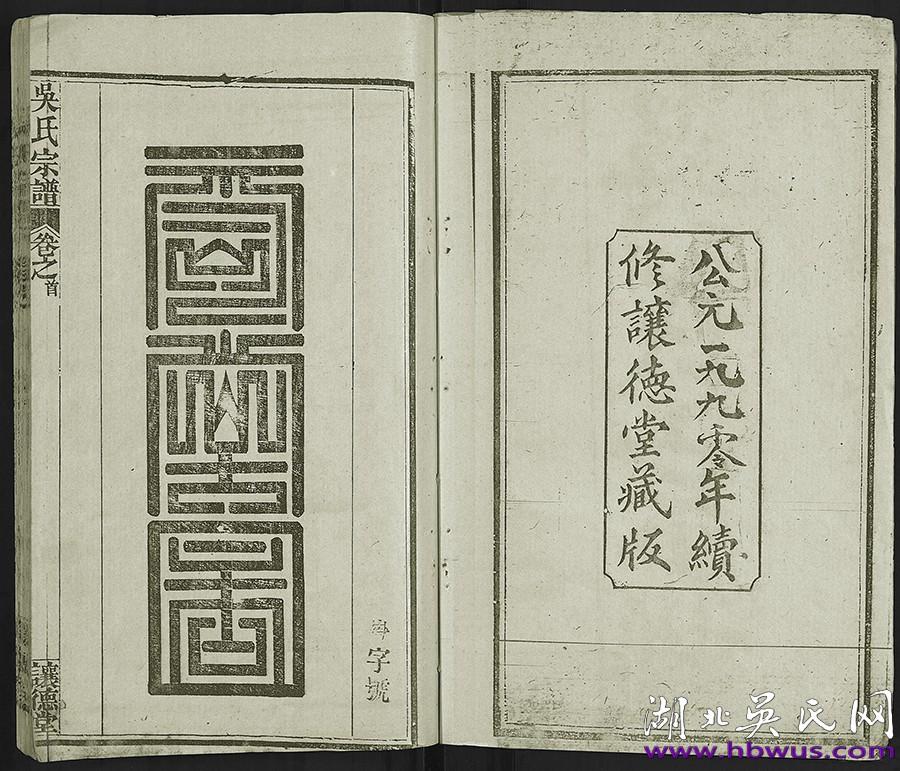 公元一九九零年續
修讓德堂藏版
字號
吳氏宗譜 卷之首
讓德堂
湖北吳氏网
www.hbwus.com